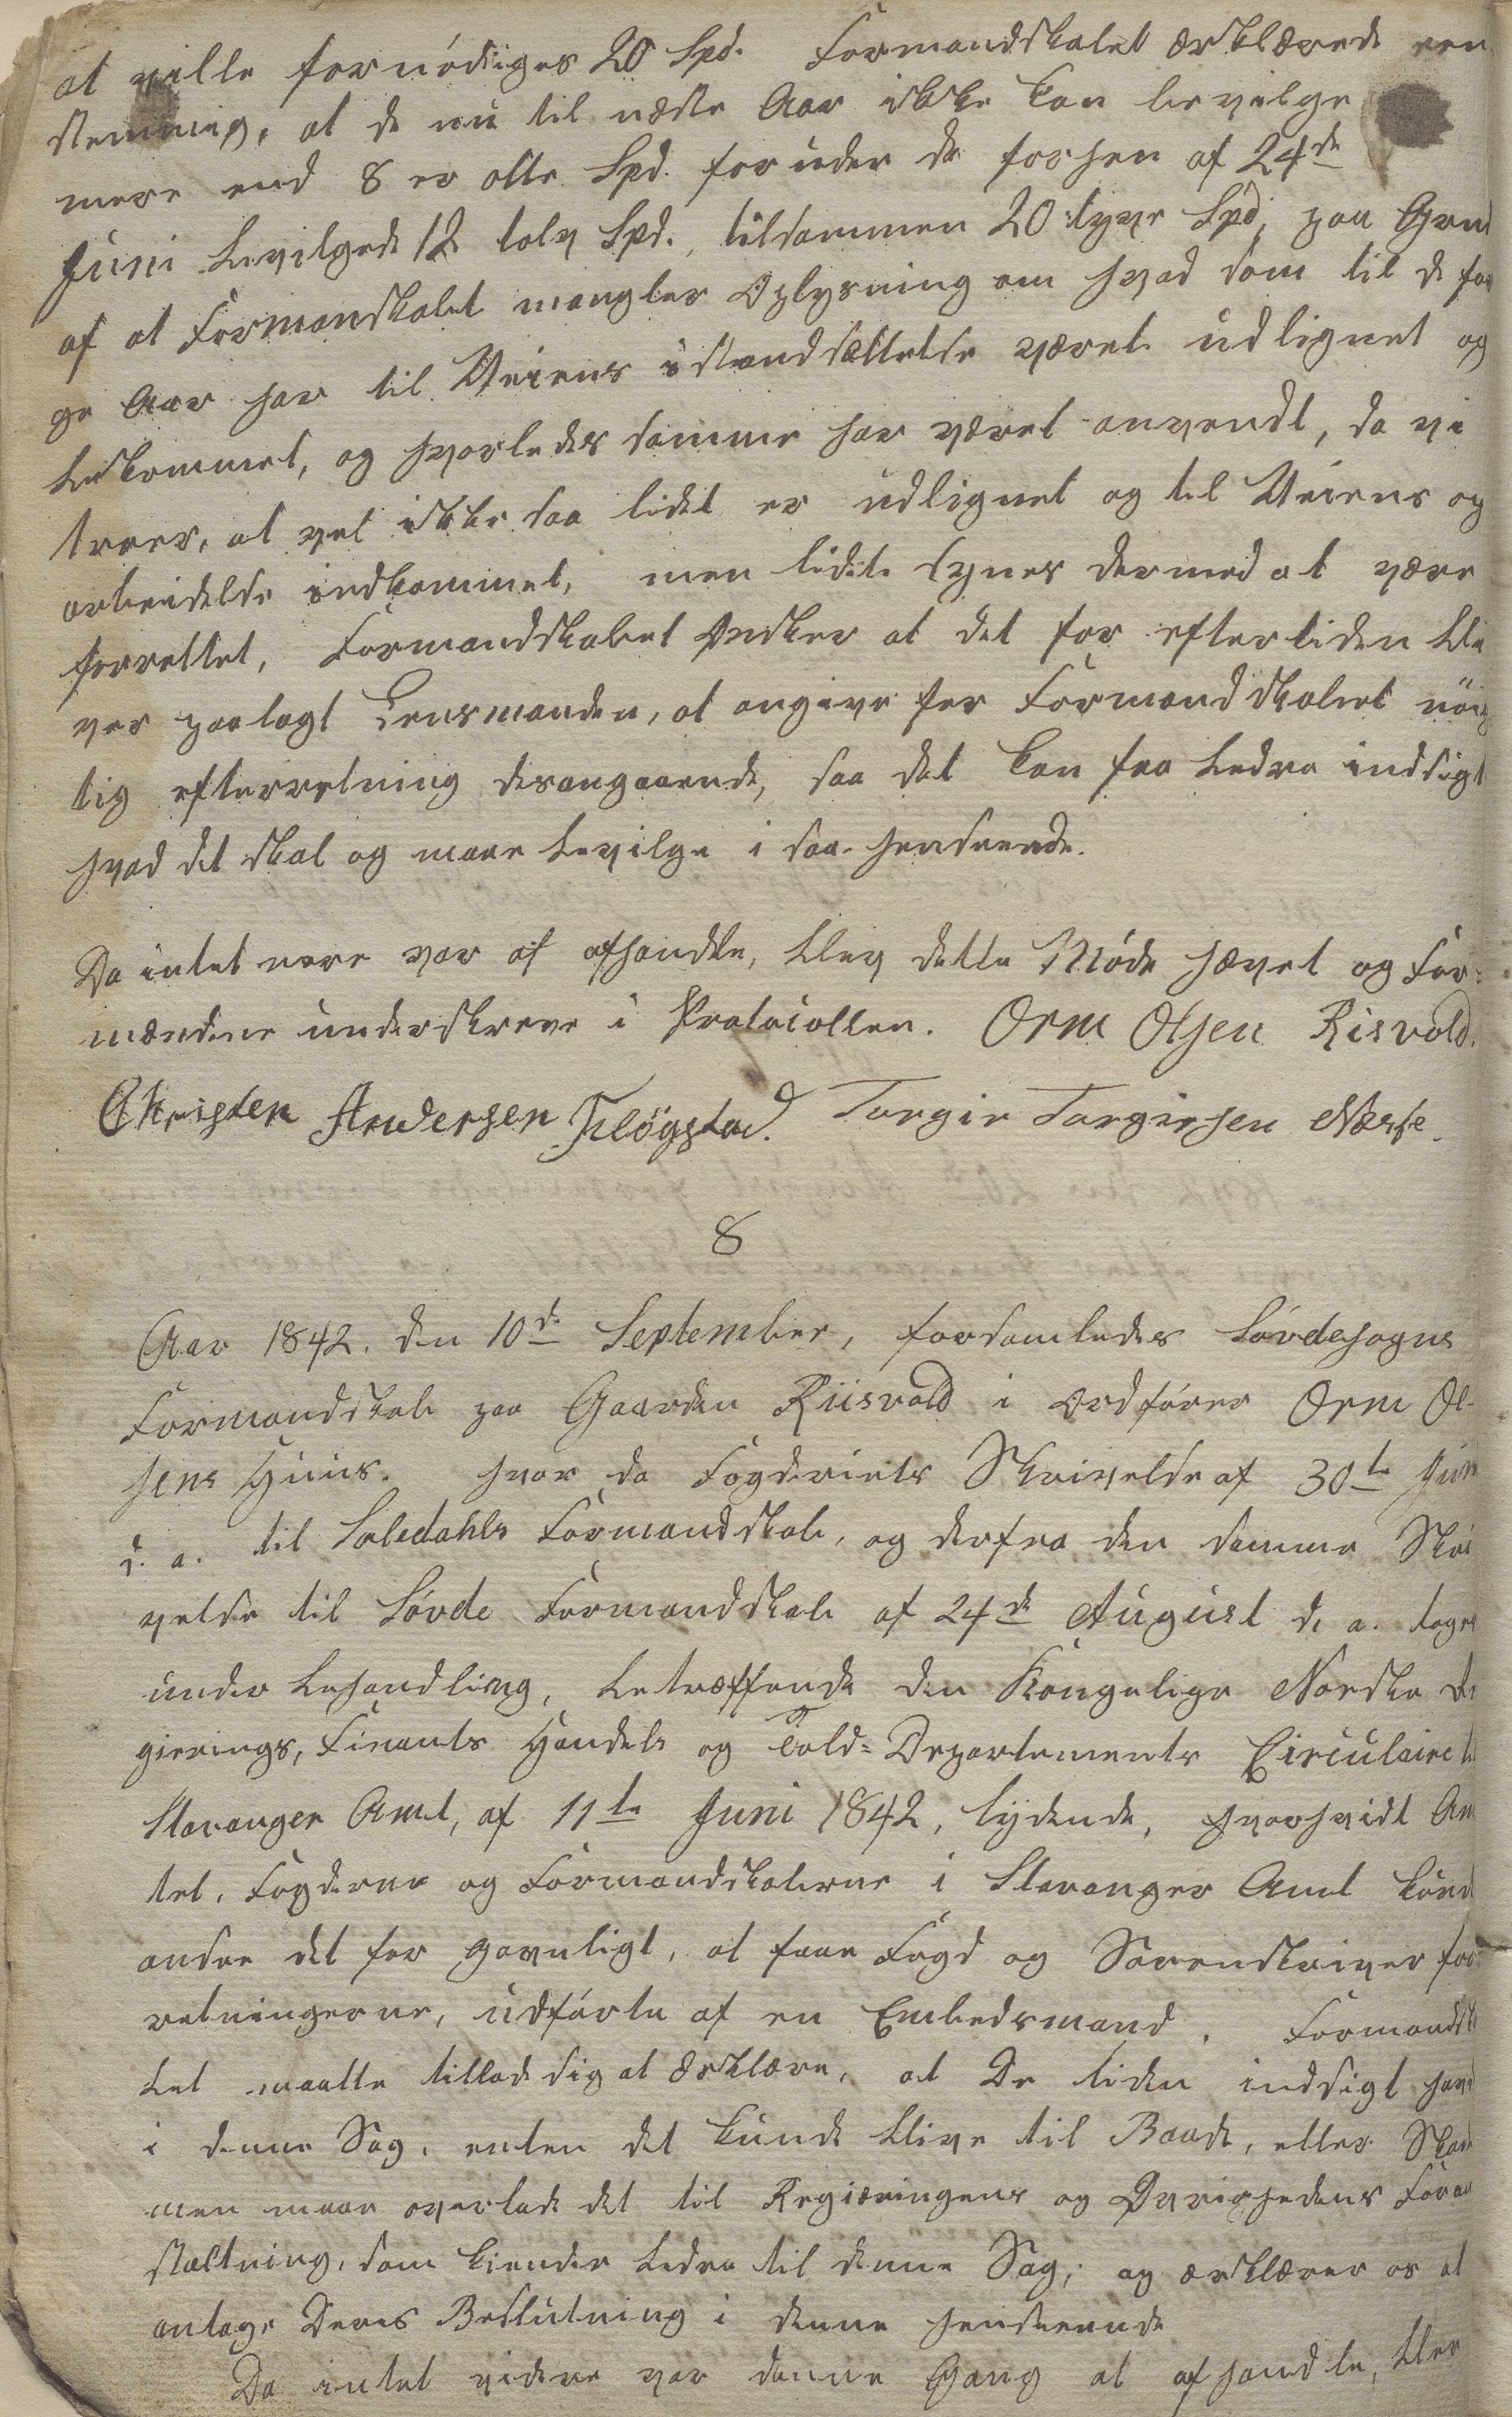 at ville fornødiges 20 Spd. Formandskabet ærklærede een
stemmig, at de nu til næste Aar ikke kan bevilge
mere end 8 er otte Spd. foruden de forhen af 24de
Juni bevilgede 12 tolv Spd., tilsammen 20 tyve Spd, paa Grund
af at Formanskabet mangler Oplysning om hvad som til de for
ge Aar har til Veiens istandsættelse været udlignet og
bekommet, og hvorledes samme har været anvendt, da vi
troer, at vel ikke saa lidet er udlignet og til Veiens og
arbeidelse indkommet, men lidet synes dermed at være
forrettet, Formandskabet Ønsker at det for eftertiden bli
ver paalagt Lensmanden, at angive for Formandskabet nöig
tig efterretning desangaaende, saa det kan faa bedre indsigt
hvad det skal og maae bevilge i saa henseende.
Da intet mere var af afhandle, blev dette Møde hævet og For-
mændene underskreve i Protocollen. Orm Olsen Risvold.
Christen Andersen Fløgstad. Torgir Torgirsen Næsse.
8
Aar 1842. den 10de September, forsamledes Søvdesogns
Formandskab paa Gaarden Riisvold i Ordfører Orm Ol-
sens Huus. hvor da Fogderiets Skrivelse af 30te Juni
d. a. til Suledahls Formandskab, og derfra den samme Skri
velse til Søvde Formandskab af 24de August d. a. toges
under behandling, betræffende den Kongelige Norske Re
gierings, Finants Handels og Told-Departements Circulaire til
Stavanger Amt, af 11te Juni 1842, lydende, hvorhvidt Am
tet, Fogderne og Formandskaberne i Stavanger Amt kunde
ansee det for gavnligt, at faae Fogd og Sorenskriver for
retningerne, udførte af en Embedsmand. Formandska
bet maatte tillade sig at ærklære, at De liden indsigt havde
i denne Sag, enten det kunde blive til Baade, eller Skade
men maae overlade det til Regieringens og Øvrighedens Foran
staltning, som kiender bedre til denne Sag; og ærklærer os at
antage Deres Beslutning i denne henseende
Da intet videre var denne Gang at afhandle, blev